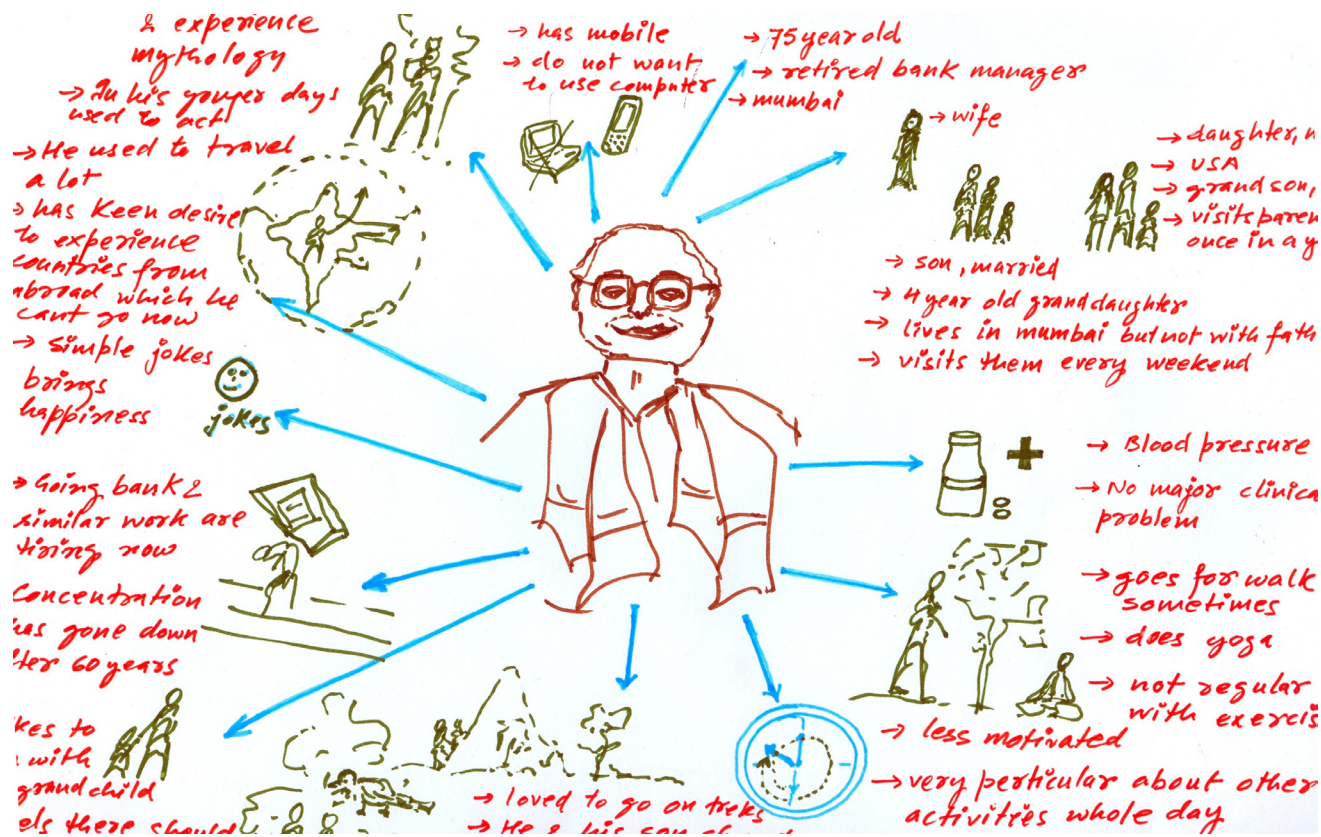 & experience
mythology
→ In his younger days
used to act
→ He used to travel
a lot
→ has keen desire
to experience
countries from
abroad which he
cant go now
→ simple jokes
brings
happiness
jokes
→ Going bank &
similar work are
tiring now
concentration
has gone down
60 years
to
with
grandchild
there should
→ has mobile
→ do not want
to use computer
→ 75 year old
→ retired bank manager
→ mumbai
→ wife
→ daughter,
→ USA
→ grandson,
→ visits
once in a
→ son, married
→ 4 year old granddaughter
→ lives in mumbai but not with
→ visits them every weekend
→ Blood pressure
→ No major
problem
→ goes for walk
sometimes
→ does yoga
→ not regular
with
→ less motivated
→ very perticular about other
activities whole day
→ loved to go on treks
→ He & his son